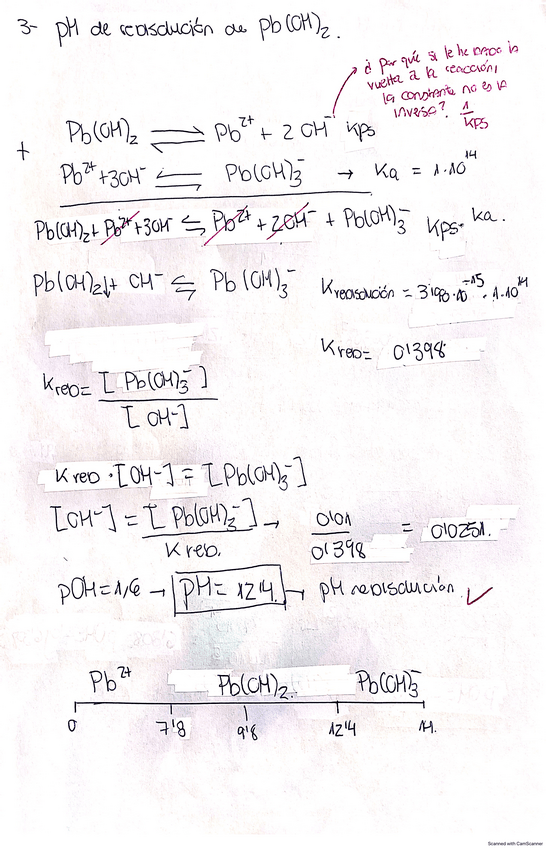 3- pH de redisolución de Pb(OH)₂.
¿Por qué si le he dado la
vuelta a la reacción,
la constante no es la
inversa? 1/KPS
Pb(OH)₂ ⇌ Pb²⁺ + 2 OH⁻ Kps
+
Pb²⁺ + 3OH⁻ ⇌ Pb(OH)₃⁻ → Ka = 1·10¹⁴
Pb(OH)₂ + Pb²⁺ + 3OH⁻ ⇆ Pb²⁺ + 2OH⁻ + Pb(OH)₃⁻ Kps· Ka.
Pb(OH)₂↓ + OH⁻ ⇆ Pb(OH)₃⁻ Kredisolución = 3'98·10⁻¹⁵ · 1·10¹⁴
Kred= 0'398
Kred= [Pb(OH)₃⁻] / [OH⁻]
Kred · [OH⁻] = [Pb(OH)₃⁻]
[OH⁻] = [Pb(OH)₃⁻] / Kred. → 0'01 / 0'398 = 0'0251.
pOH = 1,6 → pH = 12'4. → pH redisolución. ✓
Pb²⁺ Pb(OH)₂ Pb(OH)₃⁻
0 7'8 9'8 12'4 14.
Scanned with CamScanner